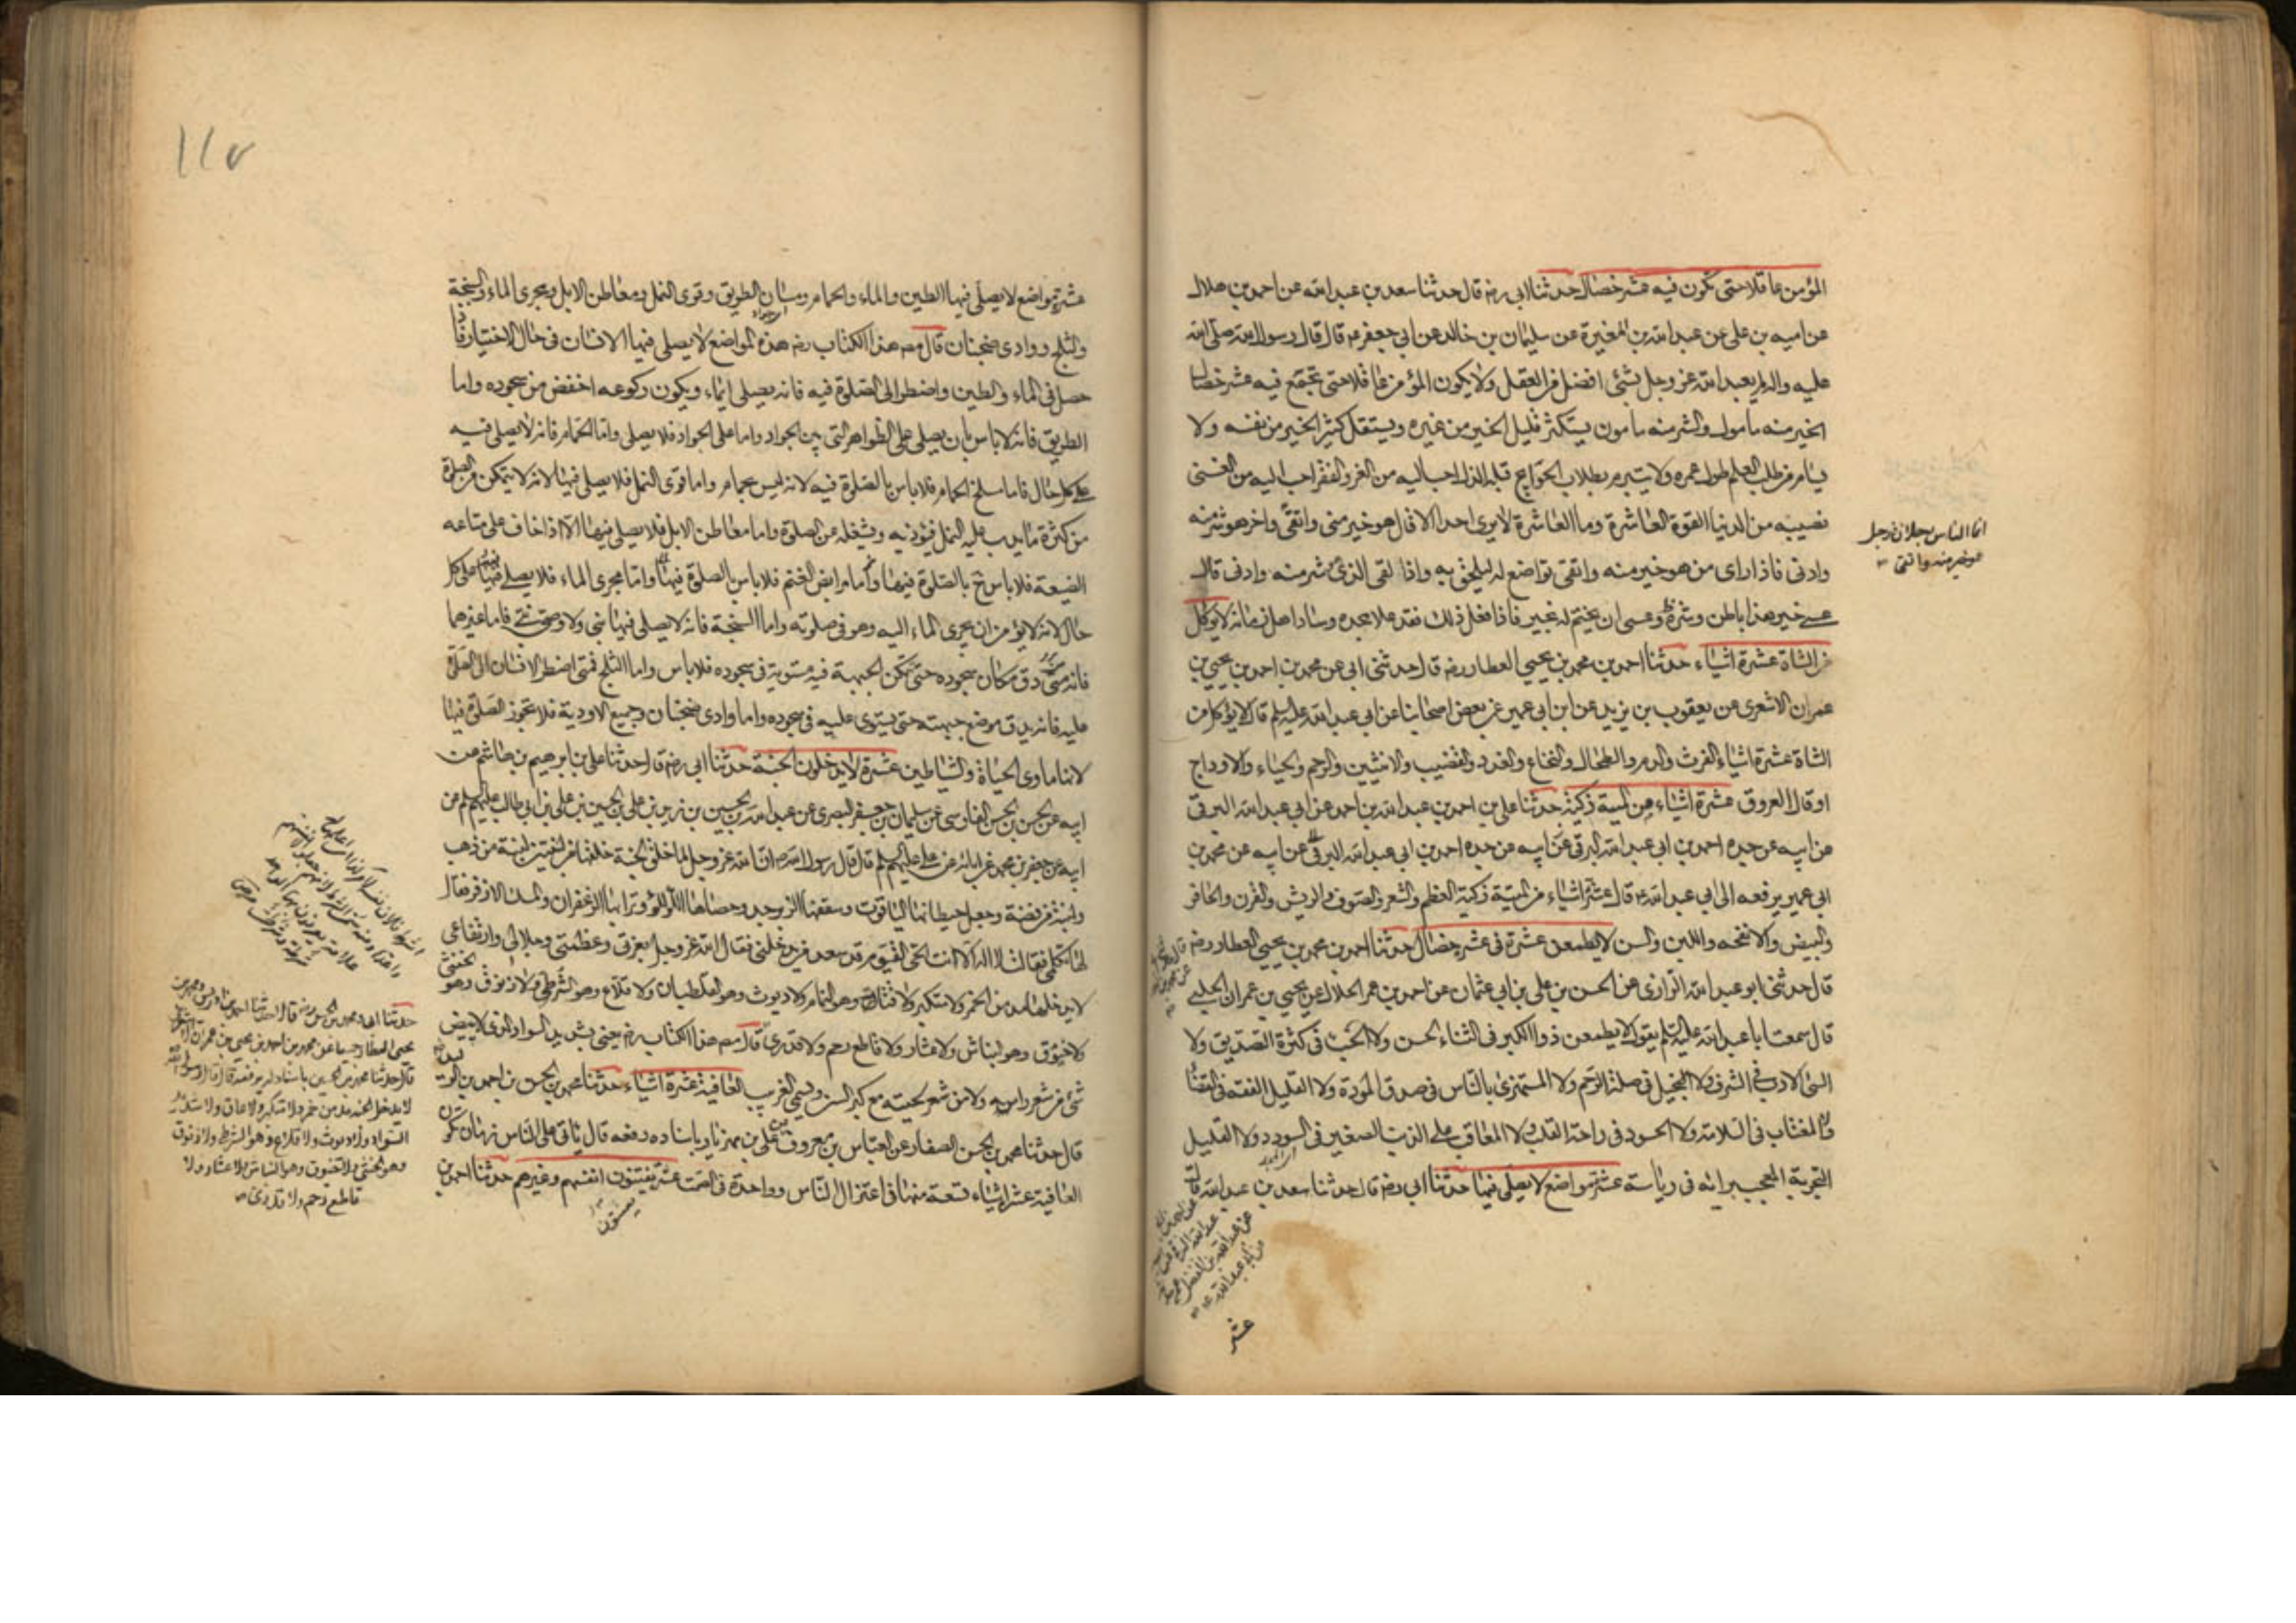 المؤمن عاقلا حتى تكون فيه عشر خصال حدثنا ابي رضه قال حدثنا سعد بن عبد الله عن احمد بن هلال
عن اميه بن علي عن عبد الله بن المغيرة عن سليمان بن خالد عن ابي جعفر ع قال قال رسول الله صلى الله
عليه واله لم يعبد الله عز وجل بشئ افضل من العقل ولا يكون المؤمن عاقلا حتى تجتمع فيه عشر خصال
الخير منه مامول والشر منه مامون يستكثر قليل الخير من غيره ويستقل كثير الخير من نفسه ولا
يسام من طلب العلم طول عمره ولا يتبرم بطلاب الحوائج قبله الذل احب اليه من العز والفقر احب اليه من الغنى
نصيبه من الدنيا القوة العاشرة وما العاشرة لا يرى احدا الا قال هو خير مني واتقى واخر هو شر منه
وادنى فاذا راى من هو خير منه واتقى تواضع له ليلحق به واذا لقي الذي شر منه وادنى قال
عسى خير هذا باطن وشره ظ وعسى ان يختم له بخير فاذا فعل ذلك فقد علا مجده وساد اهل زمانه لا يوكل
من الشاة عشرة اشياء حدثنا احمد بن محمد بن يحيى العطار رضه قال حدثني ابي عن محمد بن احمد بن يحيى بن
عمران الاشعري عن يعقوب بن يزيد عن ابن ابي عمير عن بعض اصحابنا عن ابي عبد الله عليه السلم قال لا يؤكل من
الشاة عشرة اشياء الفرث والدم والطحال والنخاع والغدد والقضيب والانثيين والرحم والحياء والاوداج
او قال العروق عشرة اشياء من الميتة ذكية حدثنا علي بن احمد بن عبد الله بن احمد بن ابي عبد الله البرقي
عن ابيه عن جده احمد بن ابي عبد الله البرقي عن ابيه عن جده احمد بن ابي عبد الله البرقي عن ابيه عن محمد بن
ابي عمير يرفعه الى ابي عبد الله ع قال عشرة اشياء من الميتة ذكية العظم والشعر والصوف والريش والقرن والحافر
والبيض والانفحه واللبن والسن لا يطمعن عشرة في عشر خصال حدثنا احمد بن محمد بن يحيى العطار رضه
قال حدثني ابو عبد الله الرازي عن الحسن بن علي بن ابي عثمان عن احمد بن عمر الحلال عن يحيى بن عمران الحلبي
قال سمعت ابا عبد الله عليه السلم يقول لا يطمعن ذو الكبر في الثناء الحسن ولا الخب في كثرة الصديق ولا
السئ الادب في الشرف ولا البخيل في صلة الرحم ولا المستهزئ بالناس في صدق المودة ولا القليل الفقه في القضاء
ولا المغتاب في السلامة ولا الحسود في راحة القلب ولا المعاقب على الذنب الصغير في السودد ولا القليل
التجربة المعجب برائه في رياسة عشرة مواضع لا يصلى فيها حدثنا ابي رضه قال حدثنا سعد بن عبد الله قال
انما الناس رجلان فرجل
هو خير منه واتقى
عشر
عشرة مواضع لا يصلى فيها الطين والماء والحمام ومسان الطريق وقرى النمل ومعاطن الابل ومجرى الماء والسبخة
والثلج ووادي ضجنان قال مصـ هذا الكتاب رضه هذه المواضع لا يصلي فيها الانسان في حال الاختيار فاذا
حصل في الماء والطين واضطر الى الصلوة فيه فانه يصلي ايماء ويكون ركوعه اخفض من سجوده واما
الطريق فانه لا باس بان يصلى على الظواهر التي بين الجواد واما على الجواد فلا يصلي واما الحمام فانه لا يصلى فيه
على كل حال فاما مسلخ الحمام فلا باس بالصلوة فيه لانه ليس بحمام واما قرى النمل فلا يصلى فيها لانه لا يتمكن من الصلوة
من كثرة ما يدب عليه النمل فيؤذيه ويشغله عن الصلوة واما معاطن الابل فلا يصلى فيها الا اذا خاف على متاعه
الضيعة فلا باس ح بالصلوة فيها واما مرابض الغنم فلا باس بالصلوة فيها واما مجرى الماء فلا يصلى فيها على كل
حال لانه لا يؤمن ان يجري الماء اليه وهو في صلوته واما السبخة فانه لا يصلي فيها نبي ولا وصي نبي فاما غيرهما
فانه متى دق مكان سجوده حتى تمكن الجبهة فيه مستوية في سجوده فلا باس واما الثلج فمتى اضطر الانسان الى الصلوة
عليه فانه يدق موضع جبهته حتى يستوي عليه في سجوده واما وادي ضجنان وجميع الاودية فلا تجوز الصلوة فيها
لانها ماوى الحياة والشياطين عشرة لا يدخلون الجنة حدثنا ابي رضه قال حدثنا علي بن ابرهيم بن هاشم عن
ابيه عن الحسن بن الحسن الفارسي عن سليمان بن جعفر البصري عن عبد الله بن الحسين بن زيد بن علي بن الحسين بن علي بن ابي طالب عليهم السلم عن
ابيه عن جعفر بن محمد عن ابائه عن علي عليهم السلم قال قال رسول الله ص ان الله عز وجل لما خلق الجنة خلقها من لبنتين لبنة من ذهب
ولبنة من فضة وجعل حيطانها الياقوت وسقفها الزبرجد وحصاها اللؤلؤ وترابها الزعفران والمسك الاذفر فقال
لها تكلمي فقالت لا اله الا انت الحي القيوم قد سعد من يدخلني فقال الله عز وجل بعزتي وعظمتي وجلالي وارتفاعي
لا يدخلها مدمن الخمر ولا متكبر ولا قتات وهو النمام ولا ديوث وهو القلطبان ولا قلاع وهو الشرطي ولا زنوق وهو الخنثى
ولا خيوق وهو النباش ولا عشار ولا قاطع رحم ولا قدري قال مصـ هذا الكتاب رضه يعني بشديد السواد الذي لا يبيض
شئ من شعر راسه ولا من شعر لحيته مع كبر السن ويسمى الغربيب العافية عشرة اشياء حدثنا محمد بن الحسن بن احمد بن الوليد
قال حدثنا محمد بن الحسن الصفار عن العباس بن معروف عن علي بن مهزيار باسناده رفعه قال ياتي على الناس زمان تكون
العافية عشرة اشياء تسعة منها في اعتزال الناس وواحدة في الصمت عشرة يفتنون انفسهم وغيرهم حدثنا احمد بن
حدثنا محمد بن الحسن رضه قال حدثنا احمد بن ادريس ومحمد بن
يحيى العطار جميعا عن محمد بن احمد بن يحيى بن عمران الاشعري
قال حدثنا محمد بن الحسين باسناد له يرفعه قال قال رسول الله
لا يدخل الجنة مدمن خمر ولا سكير ولا عاق ولا شديد
السواد ولا ديوث ولا قلاع وهو الشرطي ولا زنوق
وهو الخنثى ولا خيوق وهو النباش ولا عشار ولا
قاطع رحم ولا قدري